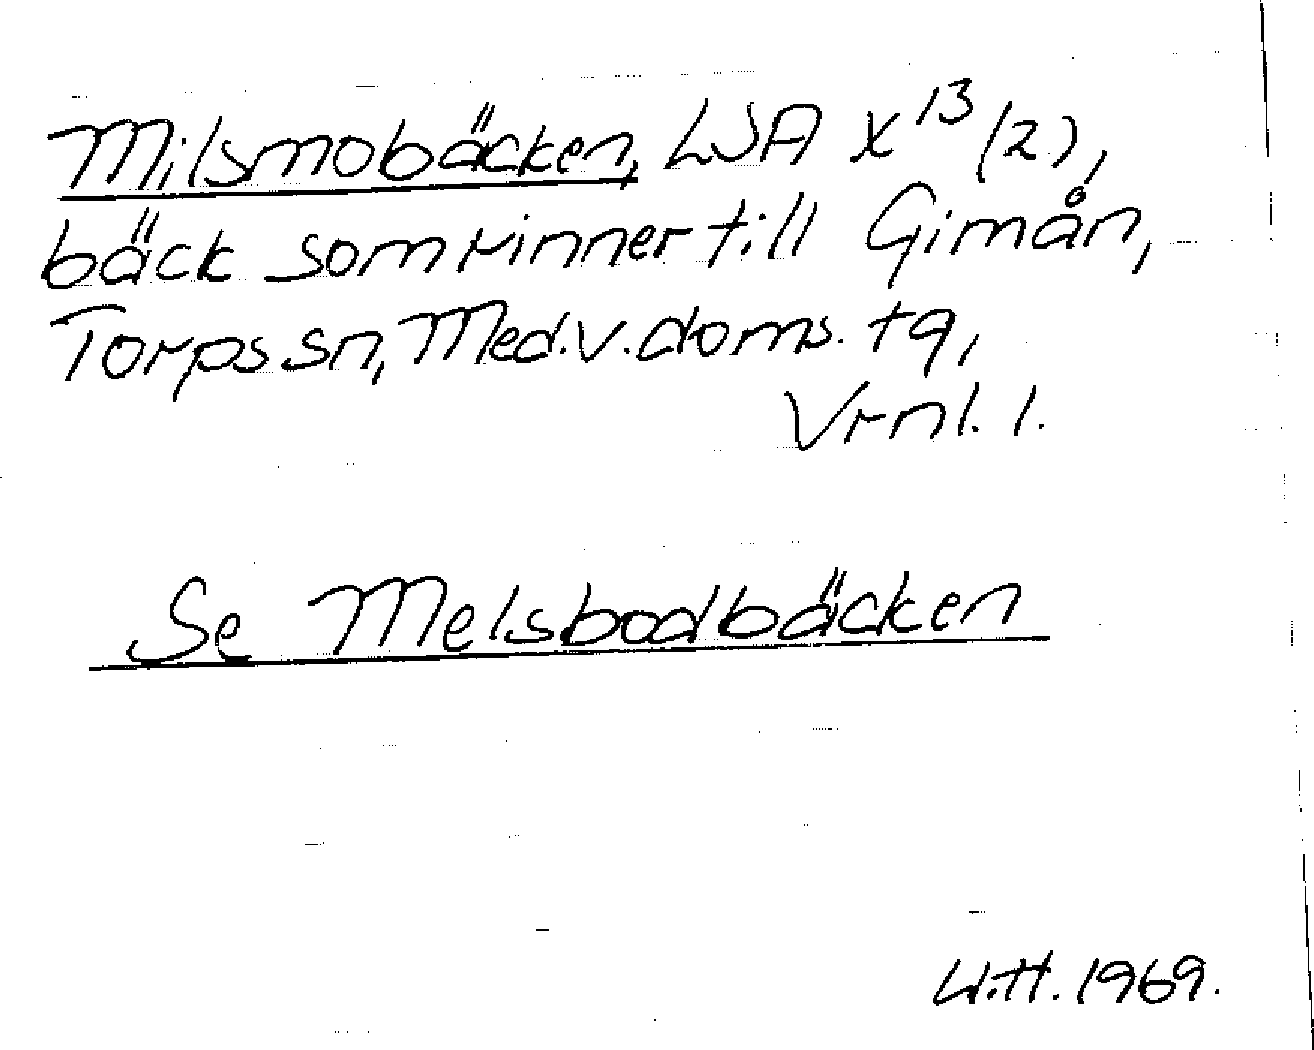 Milsmobäcken, LSA X¹³(2),
bäck som rinner till Gimån,
Torps sn, Med.v.doms. tg,
Vrnl. l.
Se Melsbodbäcken
U.H. 1969.